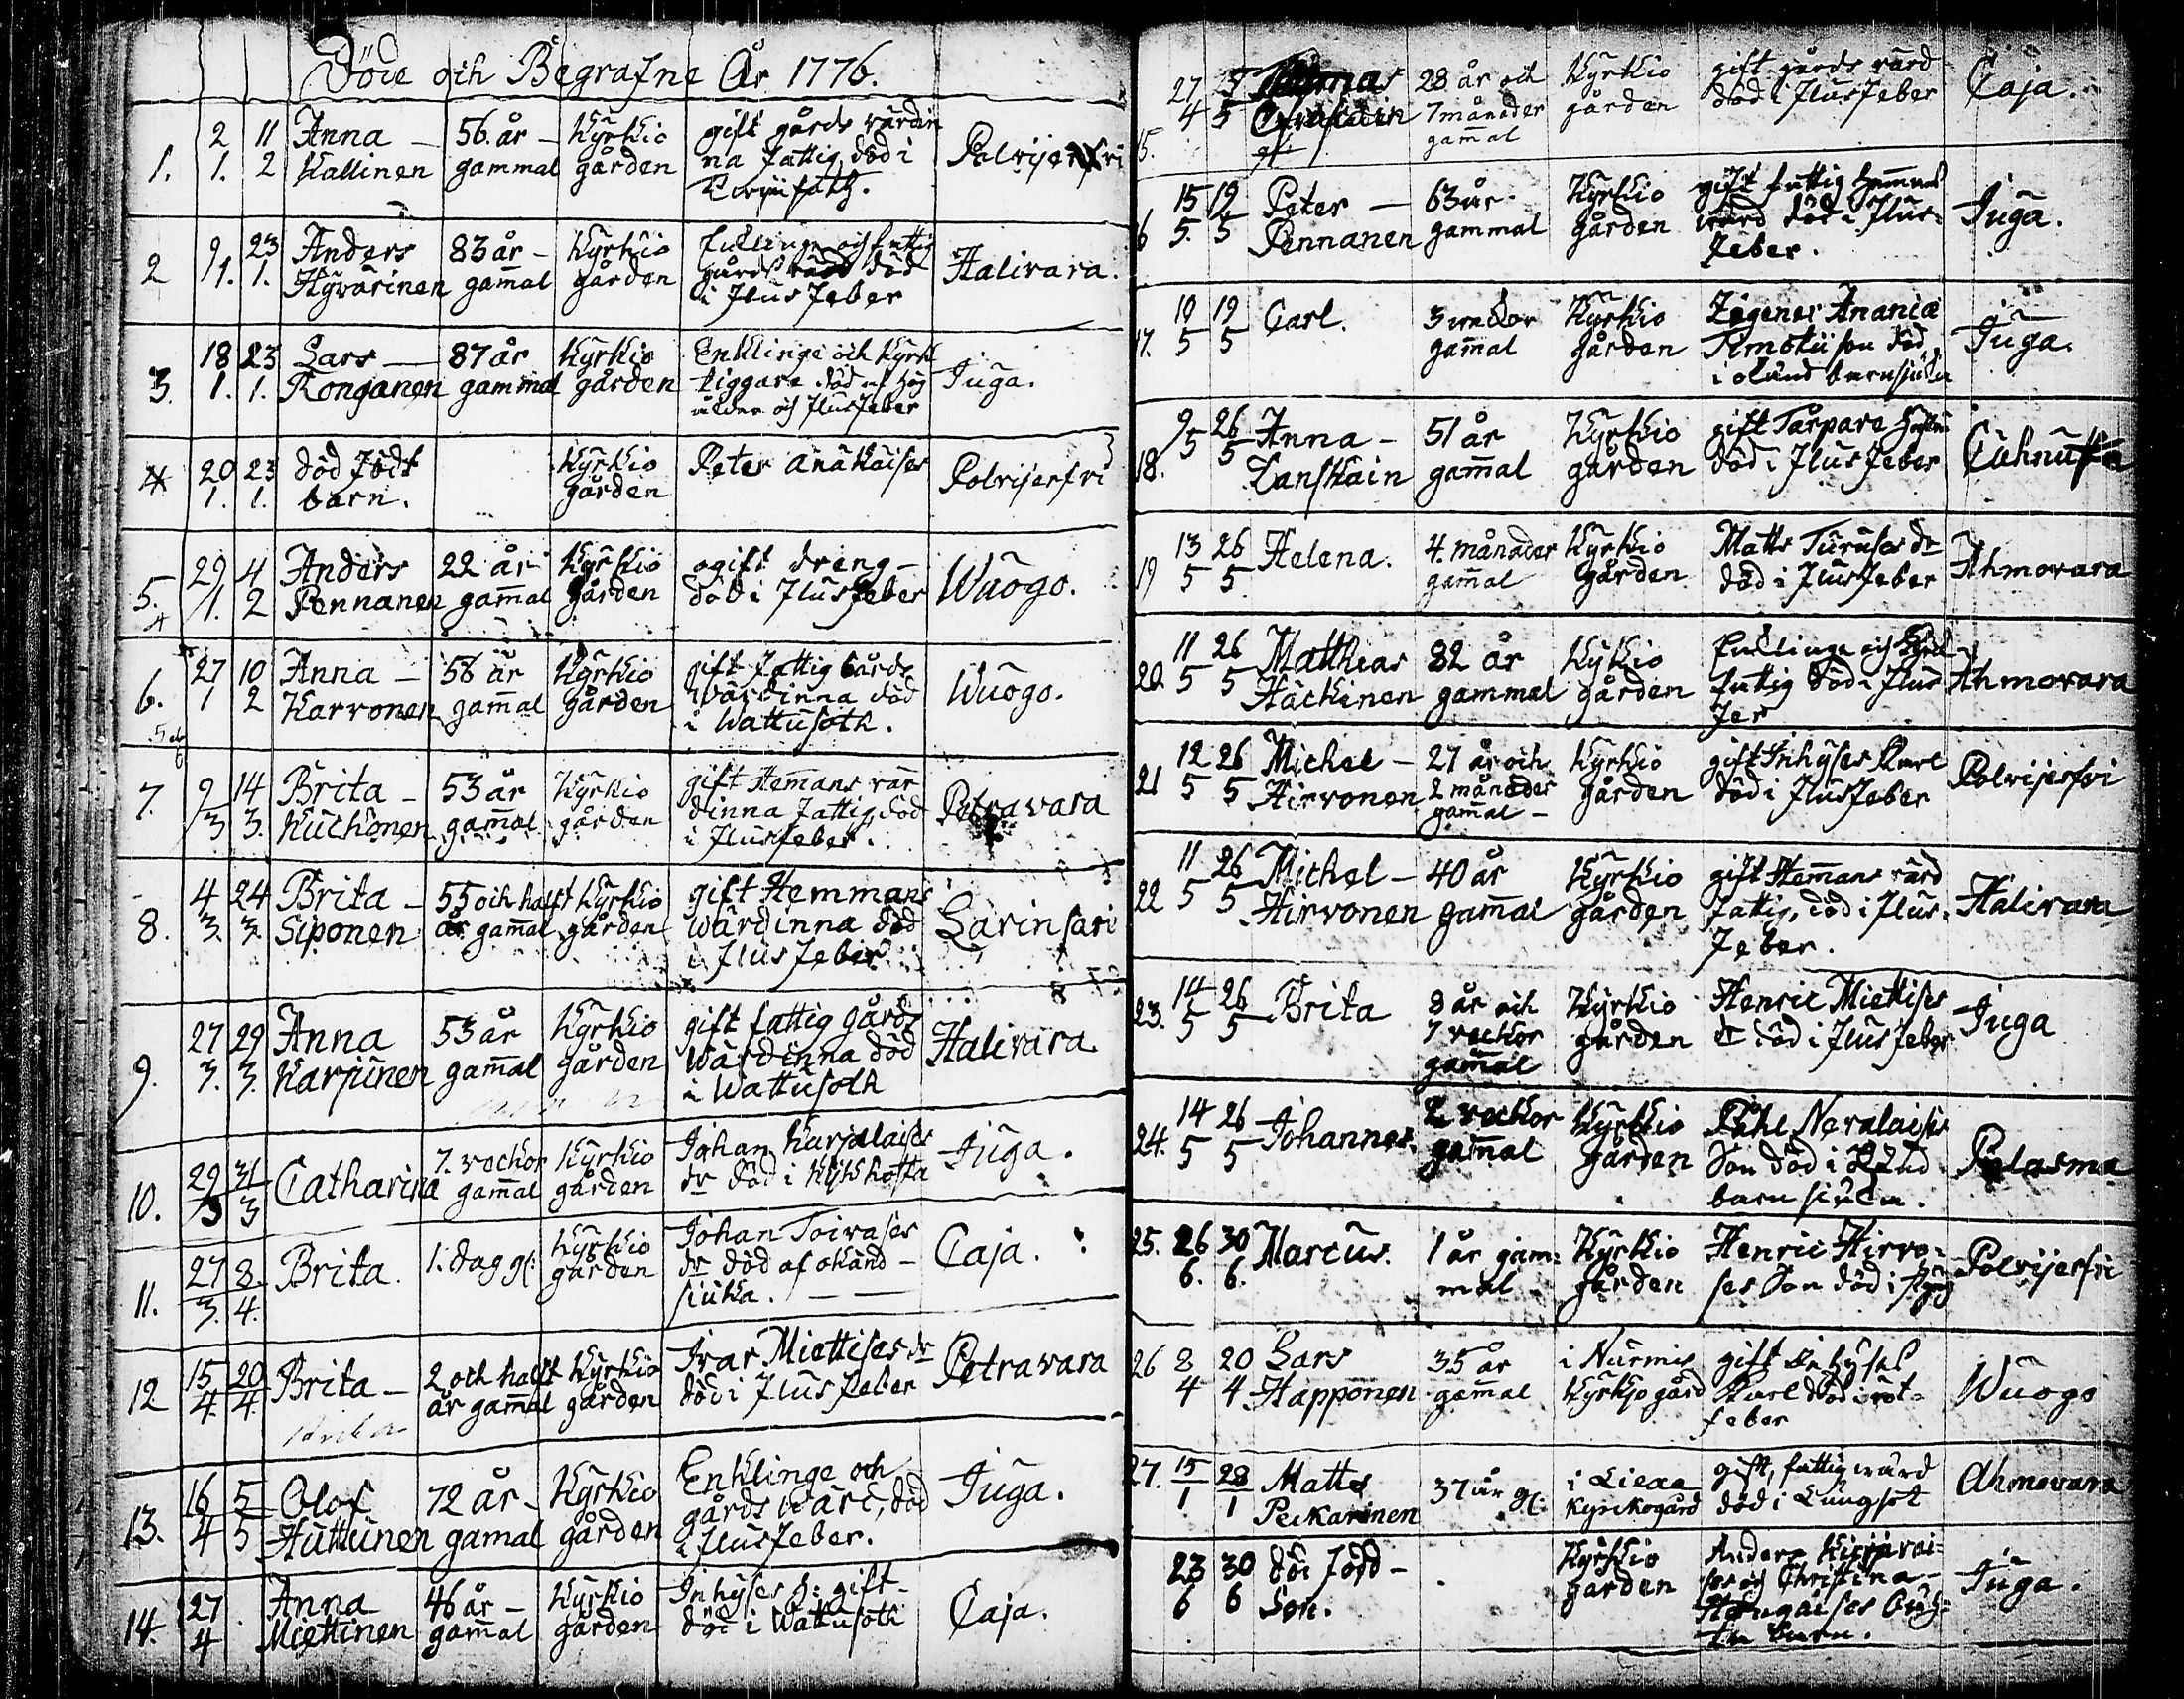 Döde och Begrafne År 1776.
1. 2/1. 11/2 Anna Kallinen 56. år gammal Kyrkio gården gift gårds värdin
na fattig, död i Polvijerfvi
2 9/1. 23/1. Anders Hyvärinen 83 år gam̄al Kyrkio gården Enklinge och fattig
gårds värd död
i Flus feber Halivara.
3. 18/1. 23/1. Lars Ronganen 87 år gammal Kyrkio gården Enklinge och Kyrk
tiggare död af hög
ålder och Flusfeber Juga.
4 20/1. 23/1. död födt barn. Kyrkio gården Peter Anakaises Polvijerfvi
5. 4 29/1. 4/2 Anders Pennanen 22 år gam̄al Kyrkio gården ogift dreng
död i Flusfeber Wuogo.
6. 5 27/1 10/2 Anna Karvonen 58 år gam̄al Kyrkio gården gift fattig Gårds
Wärdinna död
i Wattusoth. Wuogo.
7. 9/3 14/3. Brita Kuckonen 53 år gam̄al Kyrkio gården gift Hem̄ans vär
dinna fattig, död
i Flusfeber. Petravara
8. 4/3. 24/3. Brita Siponen 55 och halft år gam̄al Kyrkio gården gift Hemmans
Wärdinna död
i Flusfeber Larinsari
9. 27/3. 29/3. Anna Karjunen 53 år gam̄al Kyrkio gården gift fattig gårds
Wärdinna död
i Wattusoth Halivara
10. 29/3 31/3 Catharina 7. veckor gam̄al Kyrkio gården Johan Karjalaises
dr död i Kikhosta Juga.
11. 27/3. 8/4. Brita. 1. dag gl: Kyrkio gården Johan Toivases
dr död af okänd
siuka. Caja.
12 15/4. 20/4. Brita 2 och halft år gam̄al Kyrkio gården Ivar Miettises dr
död i Flusfeber Petravara
13. 16/4 5/5 Olof Huttunen 72 år gamal Kyrkio gården Enklinge och
gårds Wärd, död
i Flusfeber. Juga.
14. 27/4 Anna Miettinen 46 år gam̄al Kyrkio gården Inhyses h: gift
död i Wattusoth Caja.
15. 27/4 5/5 28 år och 7 månader gam̄al Kyrkio gården gift gårds värd
död i Flusfeber Caja.
16 15/5. 19/5 Peter Pennanen 63 år gammal Kyrkio gården gift fattig Hemmans
värd död i Flus
feber. Juga.
17. 10/5 19/5 Carl. 3 veckor gam̄al Kyrkio gården Zigener Ananiæ
son död
i okänd barnsiuka Juga.
18. 9/5 26/5 Anna Lanskain 51 år gam̄al Kyrkio gården gift Torpare
död i Flusfeber
19 13/5 26/5 Helena. 4. månader gam̄al Kyrkio gården Matts Turuses dr
död i Flusfeber Ahmovara
20. 11/5 26/5 Matthias Häckinen 82 år gammal Kyrkio gården Enklinge och
fattig död i Flus
fer Ahmovara
21 12/5 26/5 Michel Hirvonen 27 år och 2 månader gam̄al Kyrkio gården gift Inhyses Karl
död i Flusfeber Polvijerfvi
22 11/5 26/5 Michel Hirvonen 40 år gam̄al Kyrkio gården gift Hem̄ans värd
fattig, död i Flus
feber. Halivara
23. 14/5 26/5 Brita 8 år och 7 veckor gam̄al Kyrkio gården Henric Miettises
dr död i Flusfeber Juga
24. 14/5 26/5 Johannes. 2 veckor gam̄al Kyrkio gården Påhl Nevalaises
Son död i okänd
barnsiuka. Polasma
25. 26/6. 30/6. Marcus. 1 år gam:
mal Kyrkio gården Henric Hirvo:
ses Son död i Polvijerfvi
26 8/4 20/4 Lars Happonen 35 år gam̄al i Nurmis Kyrkjo gård gift Inhyses
Karl död i röt
feber Wuogo
27. 15/1 28/1 Matts Peckarinen 37 år gl: i Liexa Kyrckogård gift, fattig wärd
död i Lungsot Ahmovara
23/6 30/6 död född Son. Kyrkio garden Anders
ses och Christina
barn. Juga.